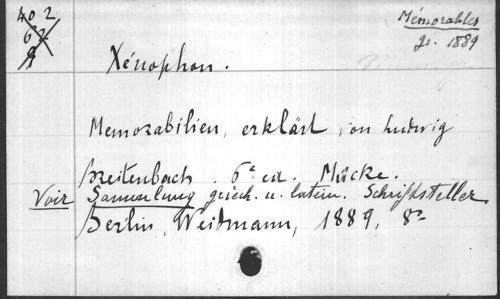 402
Mémorables
62
gr. 1889
9
Xénophon.
Memorabilien, erklärt von Ludwig
Breitenbach. 6e ed. Mücke.
Voir Sammlung griech. u. latein. Schriftsteller
Berlin, Weidmann, 1889, 8°